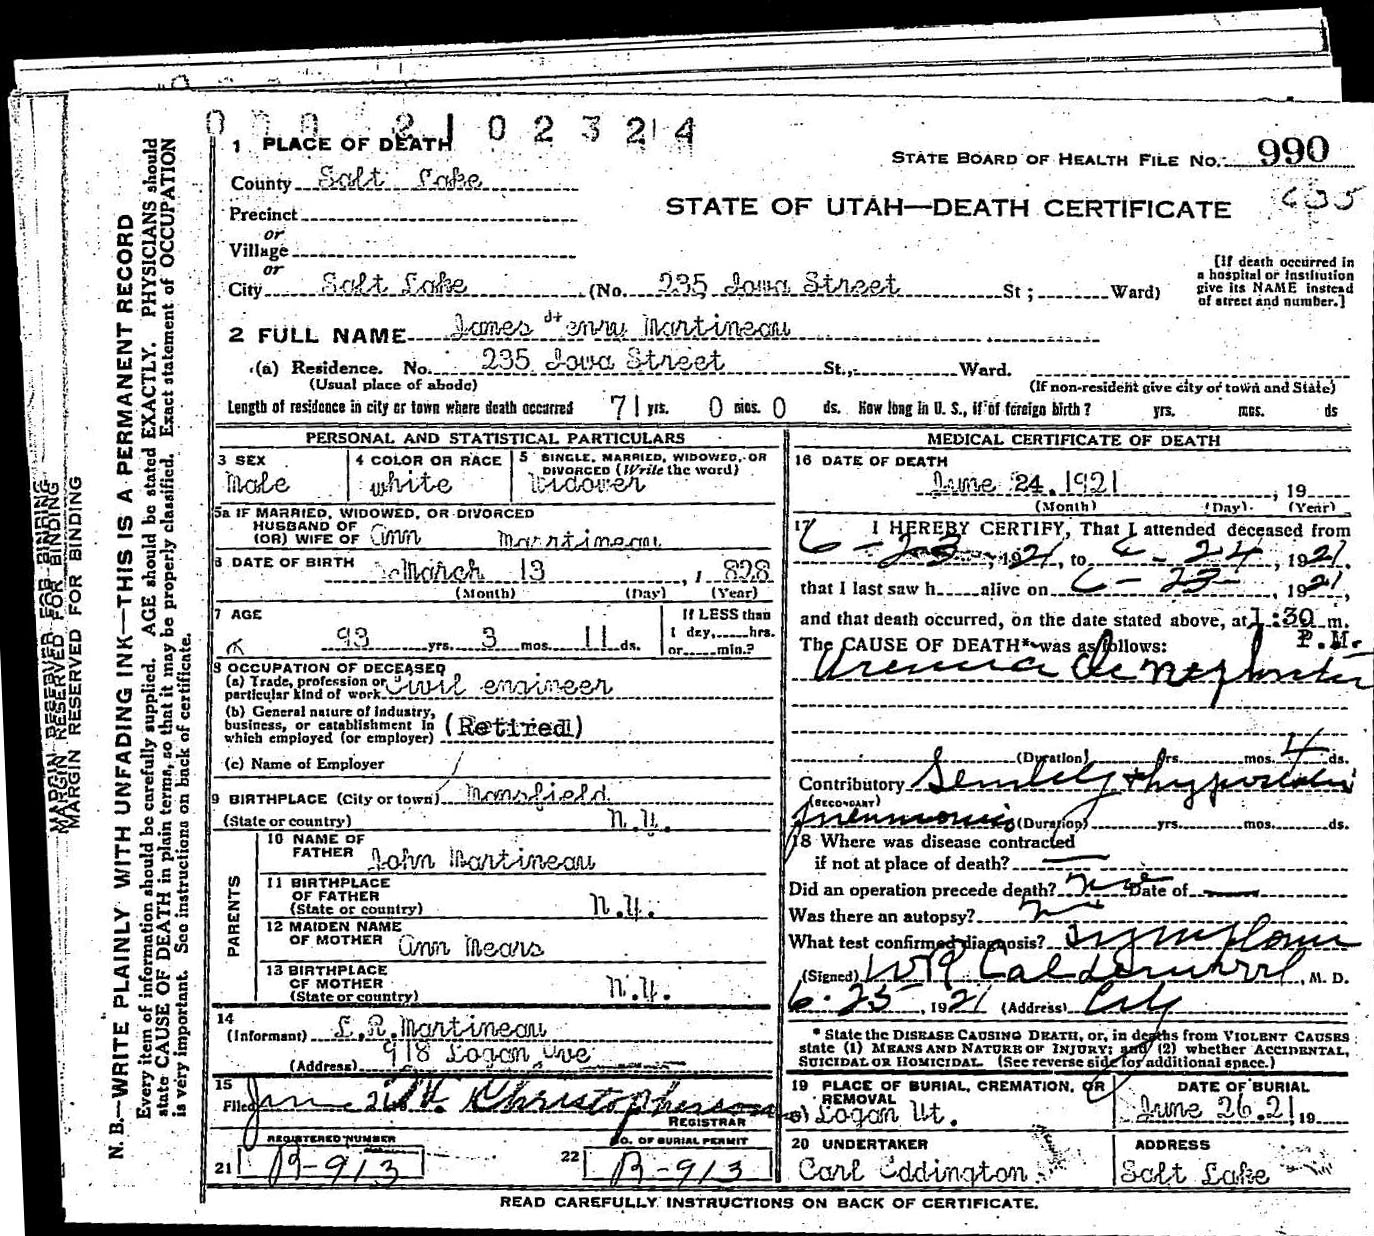 MARGIN RESERVED FOR BINDING
N. B.—WRITE PLAINLY WITH UNFADING INK—THIS IS A PERMANENT RECORD
Every item of information should be carefully supplied. AGE should be stated EXACTLY. PHYSICIANS should
state CAUSE OF DEATH in plain terms, so that it may be properly classified. Exact statement of OCCUPATION
is very important. See instructions on back of certificate.
0 0 0 2 1 0 2 3 2 4
1 PLACE OF DEATH
STATE BOARD OF HEALTH FILE NO. 990
County Salt Lake
STATE OF UTAH—DEATH CERTIFICATE
Precinct
or
Village
or
City Salt Lake (No. 235 Iowa Street St; Ward)
[If death occurred in
a hospital or institution
give its NAME instead
of street and number.]
2 FULL NAME James Henry Martineau
(a) Residence. No. 235 Iowa Street St., Ward.
(Usual place of abode) (If non-resident give city or town and State)
Length of residence in city or town where death occurred 71 yrs. 0 mos. 0 ds. How long in U. S., if of foreign birth? yrs. mos. ds
PERSONAL AND STATISTICAL PARTICULARS
3 SEX
Male
4 COLOR OR RACE
white
5 SINGLE, MARRIED, WIDOWED, OR
DIVORCED (Write the word)
Widower
5a IF MARRIED, WIDOWED, OR DIVORCED
HUSBAND OF
(OR) WIFE OF Ann Marrtineau
6 DATE OF BIRTH March 13, 1828
(Month) (Day) (Year)
7 AGE
93 yrs. 3 mos. 11 ds.
If LESS than
1 day, hrs.
or min.?
8 OCCUPATION OF DECEASED
(a) Trade, profession or
particular kind of work Civil engineer
(b) General nature of industry,
business, or establishment in
which employed (or employer) (Retired)
(c) Name of Employer
9 BIRTHPLACE (City or town) Monsfield
(State or country) N.Y.
PARENTS
10 NAME OF
FATHER John Martineau
11 BIRTHPLACE
OF FATHER
(State or country) N.Y.
12 MAIDEN NAME
OF MOTHER Ann Mears
13 BIRTHPLACE
OF MOTHER
(State or country) N.Y.
14
(Informant) L.R. Martineau
(Address) 918 Logan Ave
15
Filed
REGISTRAR
21 REGISTERED NUMBER
B-913
22 NO. OF BURIAL PERMIT
B-913
MEDICAL CERTIFICATE OF DEATH
16 DATE OF DEATH
June 24. 1921, 19
(Month) (Day) (Year)
17 I HEREBY CERTIFY, That I attended deceased from
6-23, 1921, to 6-24, 1921.
that I last saw h alive on 6-23-, 1921,
and that death occurred, on the date stated above, at 1:30 m.
P.M.
The CAUSE OF DEATH* was as follows:
(Duration) yrs. mos. 4 ds.
Contributory
(SECONDARY)
pneumonia (Duration) yrs. mos. ds.
18 Where was disease contracted
if not at place of death?
Did an operation precede death? no Date of
Was there an autopsy? no
What test confirmed diagnosis? Symptoms
(Signed) M. D.
6-25, 1921 (Address) City
* State the DISEASE CAUSING DEATH, or, in deaths from VIOLENT CAUSES
state (1) MEANS AND NATURE OF INJURY; and (2) whether ACCIDENTAL,
SUICIDAL OR HOMICIDAL. (See reverse side for additional space.)
19 PLACE OF BURIAL, CREMATION, OR
REMOVAL
Logan Ut.
DATE OF BURIAL
June 26.21, 19
20 UNDERTAKER
Carl Eddington
ADDRESS
Salt Lake
READ CAREFULLY INSTRUCTIONS ON BACK OF CERTIFICATE.